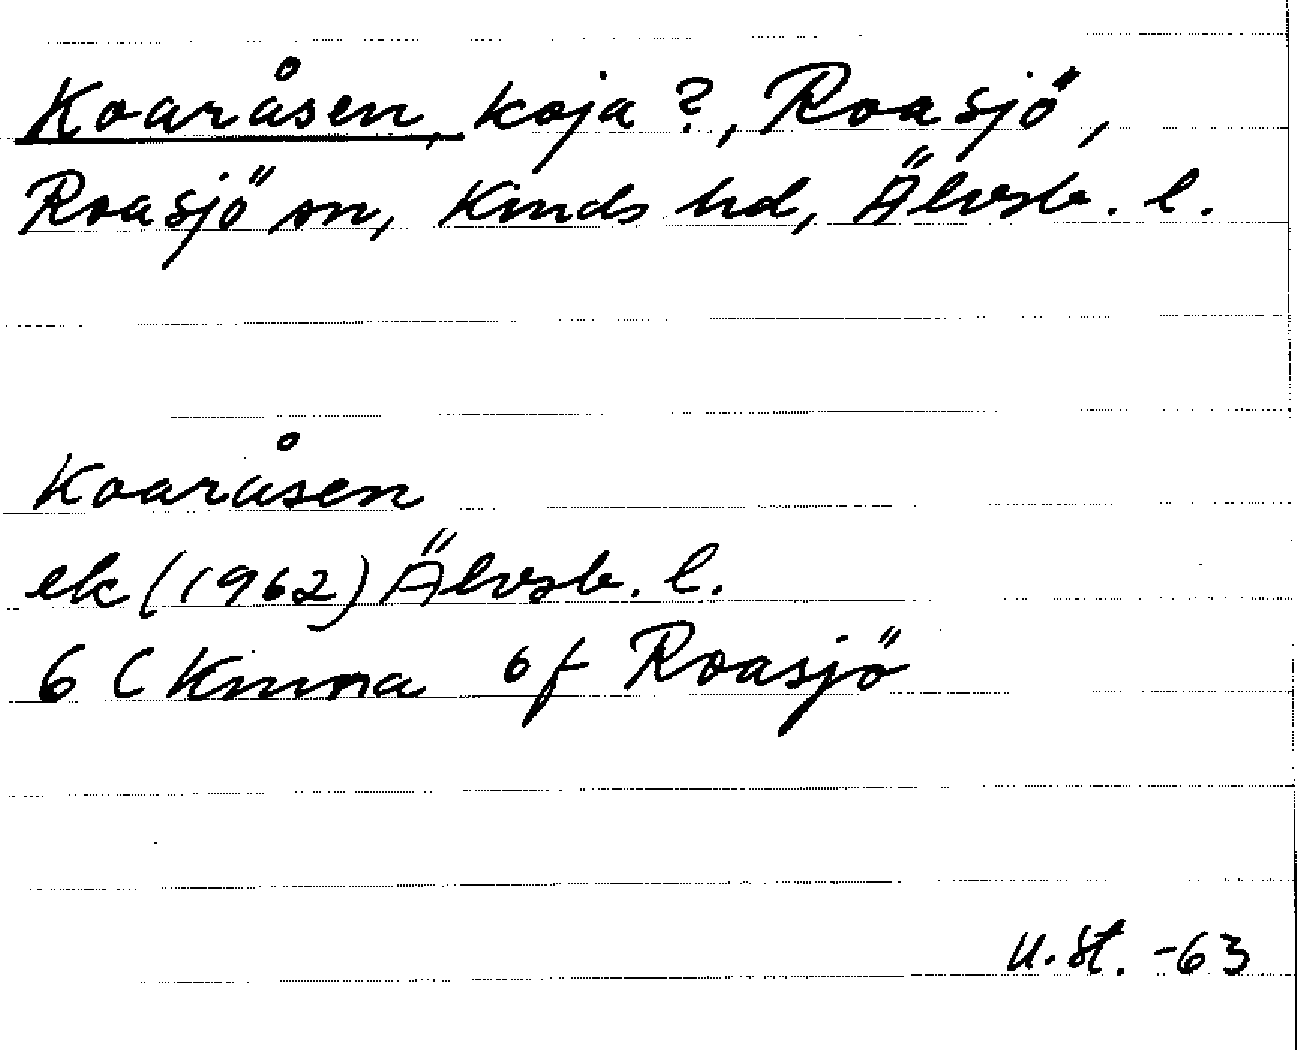 Koaråsen, koja?, Roasjö,
Roasjö sn, Kinds hd, Älvsb. l.
Koaråsen
ek (1962) Älvsb. l.
6 C Kinna 6f Roasjö
U. St. -63